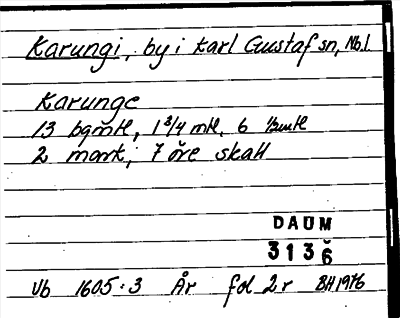 Karungi, by i Karl Gustaf sn, Nb.l.
Karunge
13 bgmtl, 1 3/4 mtl, 6 ½mtl
2 mark, 7 öre skatt
DAUM
3136
Vb 1605:3 År fol 2r BH1976